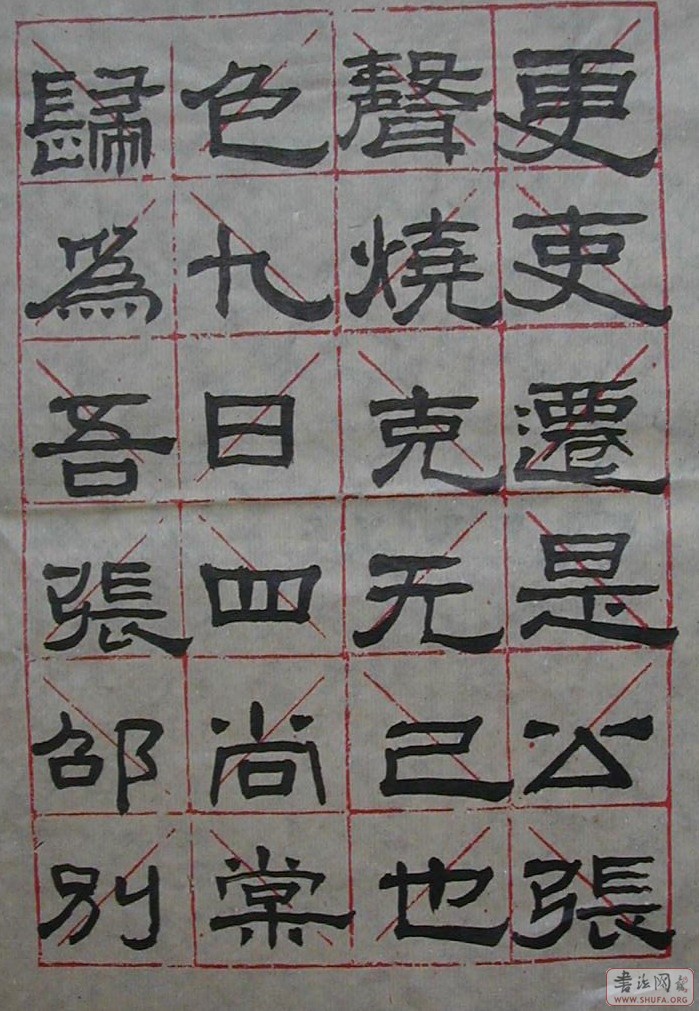 更吏遷是公張
聲燒克无己也
色九日四尚棠
歸為吾張邵別
書法网
WWW.SHUFA.ORG